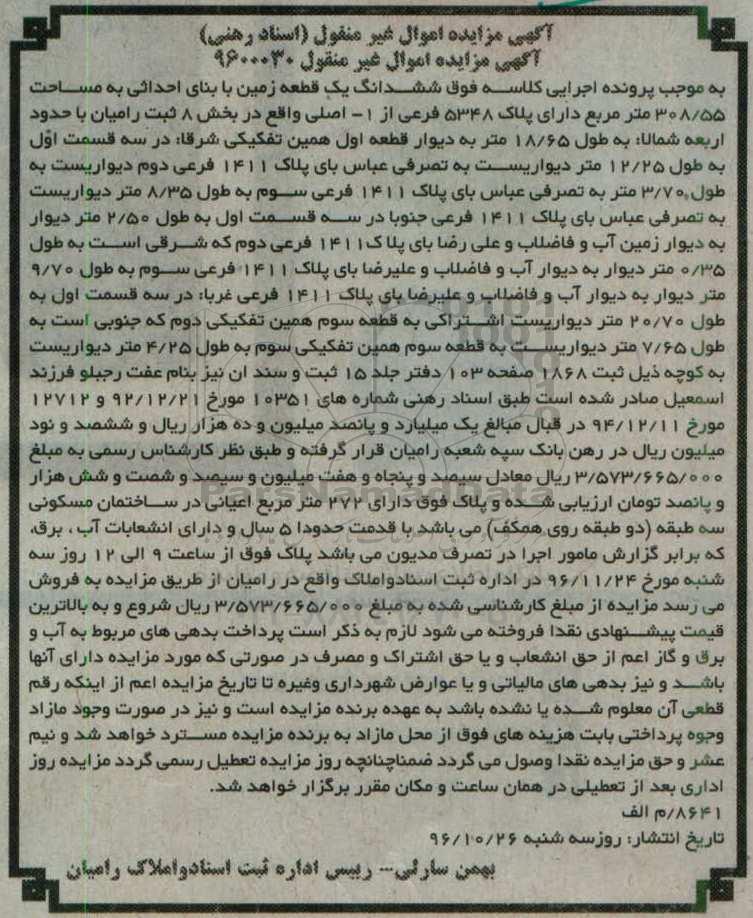 آگهی مزایده اموال غیر منقول (اسناد رهنی)
آگهی مزایده اموال غیر منقول ۹۶۰۰۰۳۰
به موجب پرونده اجرایی کلاسه فوق ششدانگ یک قطعه زمین با بنای احداثی به مساحت
۳۰۸/۵۵ متر مربع دارای پلاک ۵۳۴۸ فرعی از ۱- اصلی واقع در بخش ۸ ثبت رامیان با حدود
اربعه شمالا: به طول ۱۸/۶۵ متر به دیوار قطعه اول همین تفکیکی شرقا: در سه قسمت اوّل
به طول ۱۲/۲۵ متر دیواریست به تصرفی عباس بای پلاک ۱۴۱۱ فرعی دوم دیواریست به
طول ۳/۷۰ متر به تصرفی عباس بای پلاک ۱۴۱۱ فرعی سوم به طول ۸/۳۵ متر دیواریست
به تصرفی عباس بای پلاک ۱۴۱۱ فرعی جنوبا در سه قسمت اول به طول ۲/۵۰ متر دیوار
به دیوار زمین آب و فاضلاب و علی رضا بای پلا ک۱۴۱۱ فرعی دوم که شرقی است به طول
۰/۳۵ متر دیوار به دیوار آب و فاضلاب و علیرضا بای پلاک ۱۴۱۱ فرعی سوم به طول ۹/۷۰
متر دیوار به دیوار آب و فاضلاب و علیرضا بای پلاک ۱۴۱۱ فرعی غربا: در سه قسمت اول به
طول ۲۰/۷۰ متر دیواریست اشتراکی به قطعه سوم همین تفکیکی دوم که جنوبی است به
طول ۷/۶۵ متر دیواریست به قطعه سوم همین تفکیکی سوم به طول ۴/۲۵ متر دیواریست
به کوچه ذیل ثبت ۱۸۶۸ صفحه ۱۰۳ دفتر جلد ۱۵ ثبت و سند ان نیز بنام عفت رجبلو فرزند
اسمعیل صادر شده است طبق اسناد رهنی شماره های ۱۰۳۵۱ مورخ ۹۲/۱۲/۲۱ و ۱۲۷۱۲
مورخ ۹۴/۱۲/۱۱ در قبال مبالغ یک میلیارد و پانصد میلیون و ده هزار ریال و ششصد و نود
میلیون ریال در رهن بانک سپه شعبه رامیان قرار گرفته و طبق نظر کارشناس رسمی به مبلغ
۳/۵۷۳/۶۶۵/۰۰۰ ریال معادل سیصد و پنجاه و هفت میلیون و سیصد و شصت و شش هزار
و پانصد تومان ارزیابی شده و پلاک فوق دارای ۲۷۲ متر مربع اعیانی در ساختمان مسکونی
سه طبقه (دو طبقه روی همکف) می باشد با قدمت حدودا ۵ سال و دارای انشعابات آب ، برق،
که برابر گزارش مامور اجرا در تصرف مدیون می باشد پلاک فوق از ساعت ۹ الی ۱۲ روز سه
شنبه مورخ ۹۶/۱۱/۲۴ در اداره ثبت اسنادواملاک واقع در رامیان از طریق مزایده به فروش
می رسد مزایده از مبلغ کارشناسی شده به مبلغ ۳/۵۷۳/۶۶۵/۰۰۰ ریال شروع و به بالاترین
قیمت پیشنهادی نقدا فروخته می شود لازم به ذکر است پرداخت بدهی های مربوط به آب و
برق و گاز اعم از حق انشعاب و یا حق اشتراک و مصرف در صورتی که مورد مزایده دارای آنها
باشد و نیز بدهی های مالیاتی و یا عوارض شهرداری وغیره تا تاریخ مزایده اعم از اینکه رقم
قطعی آن معلوم شده یا نشده باشد به عهده برنده مزایده است و نیز در صورت وجود مازاد
وجوه پرداختی بابت هزینه های فوق از محل مازاد به برنده مزایده مسترد خواهد شد و نیم
عشر و حق مزایده نقدا وصول می گردد ضمناچنانچه روز مزایده تعطیل رسمی گردد مزایده روز
اداری بعد از تعطیلی در همان ساعت و مکان مقرر برگزار خواهد شد.
۸۶۴۱/م الف
تاریخ انتشار: روزسه شنبه ۹۶/۱۰/۲۶
بهمن سارلی-- رییس اداره ثبت اسنادواملاک رامیان